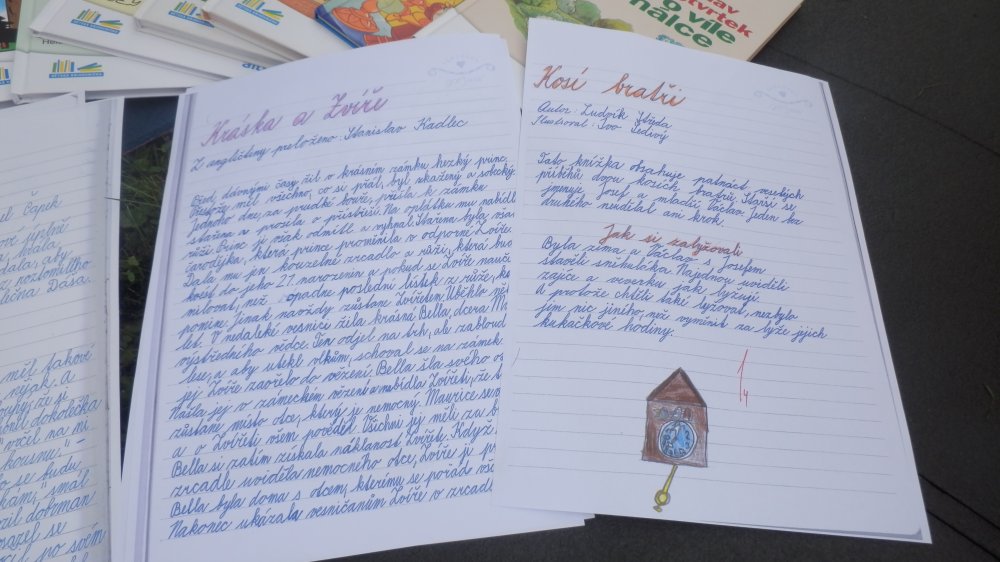 HEN
DĚTSKÁ KNIHOVNIČKA
čtvrtek
o víle
nálce
Čapek
lečna Dáša.
mil takové
nyak a
okolečka
"vočil na mi
kousnu."-
se budu
smál
dobrman
se
po svém
Kráska a Zvíře
Z angličtiny přeloženo: Stanislav Kadlec
Před dávnými časy žil v krásném zámku hezký princ.
Přestože měl všechno, co si přál, byl zkažený a sobecký.
Jednoho dne, za prudké bouře, přišla k zámku
stařena a prosila o přístřeší. Na oplátku mu nabídla
růži. Princ je však odmítl a vyhnal. Stařena byla však
čarodějka, která prince proměnila v odporné Zvíře.
Dala mu jen kouzelné zrcadlo a růži, která bude
kvést do jeho 21. narozenin a pokud se Zvíře naučí
milovat, než opadne poslední lístek z růže, ko
pomine. Jinak navždy zůstane Zvířetem. Uběhlo ně
let. V nedaleké vesnici žila krásná Bella, dcera M
výstředního vědce. Ten odjel na trh, ale zabloud
lese, a aby utekl vlkům, schoval se na zámek.
jej Zvíře zavřelo do vězení. Bella šla svého o
Našla jej v zámeckém vězení a nabídla Zvířeti, že t
zůstane místo otce, který je nemocný. Maurice se v
a o Zvířeti všem pověděl. Všichni jej měli za b
Bella si zatím získala náklonost Zvířete. Když
zrcadle uviděla nemocného otce, Zvíře ji p
Bella byla doma s otcem, kterému se pořád vš
Nakonec ukázala vesničanům Zvíře v zrcadl
Kosí bratři
Autor: Ludvík Středa
Ilustroval: Ivo Šedivý
Tato knížka obsahuje patnáct veselých
příběhů dvou kosích bratrů. Starší se
jmenuje Josef a mladší Václav. Jeden bez
druhého neudělal ani krok.
Jak si zalyžovali
Byla zima a Václav s Josefem
stavěli sněhuláka. Najednou uviděli
zajíce a veverku jak lyžují.
A protože chtěli také lyžovat, nezbylo
jim nic jiného, než vyměnit za lyže jejich
kukačkové hodiny.
1/4